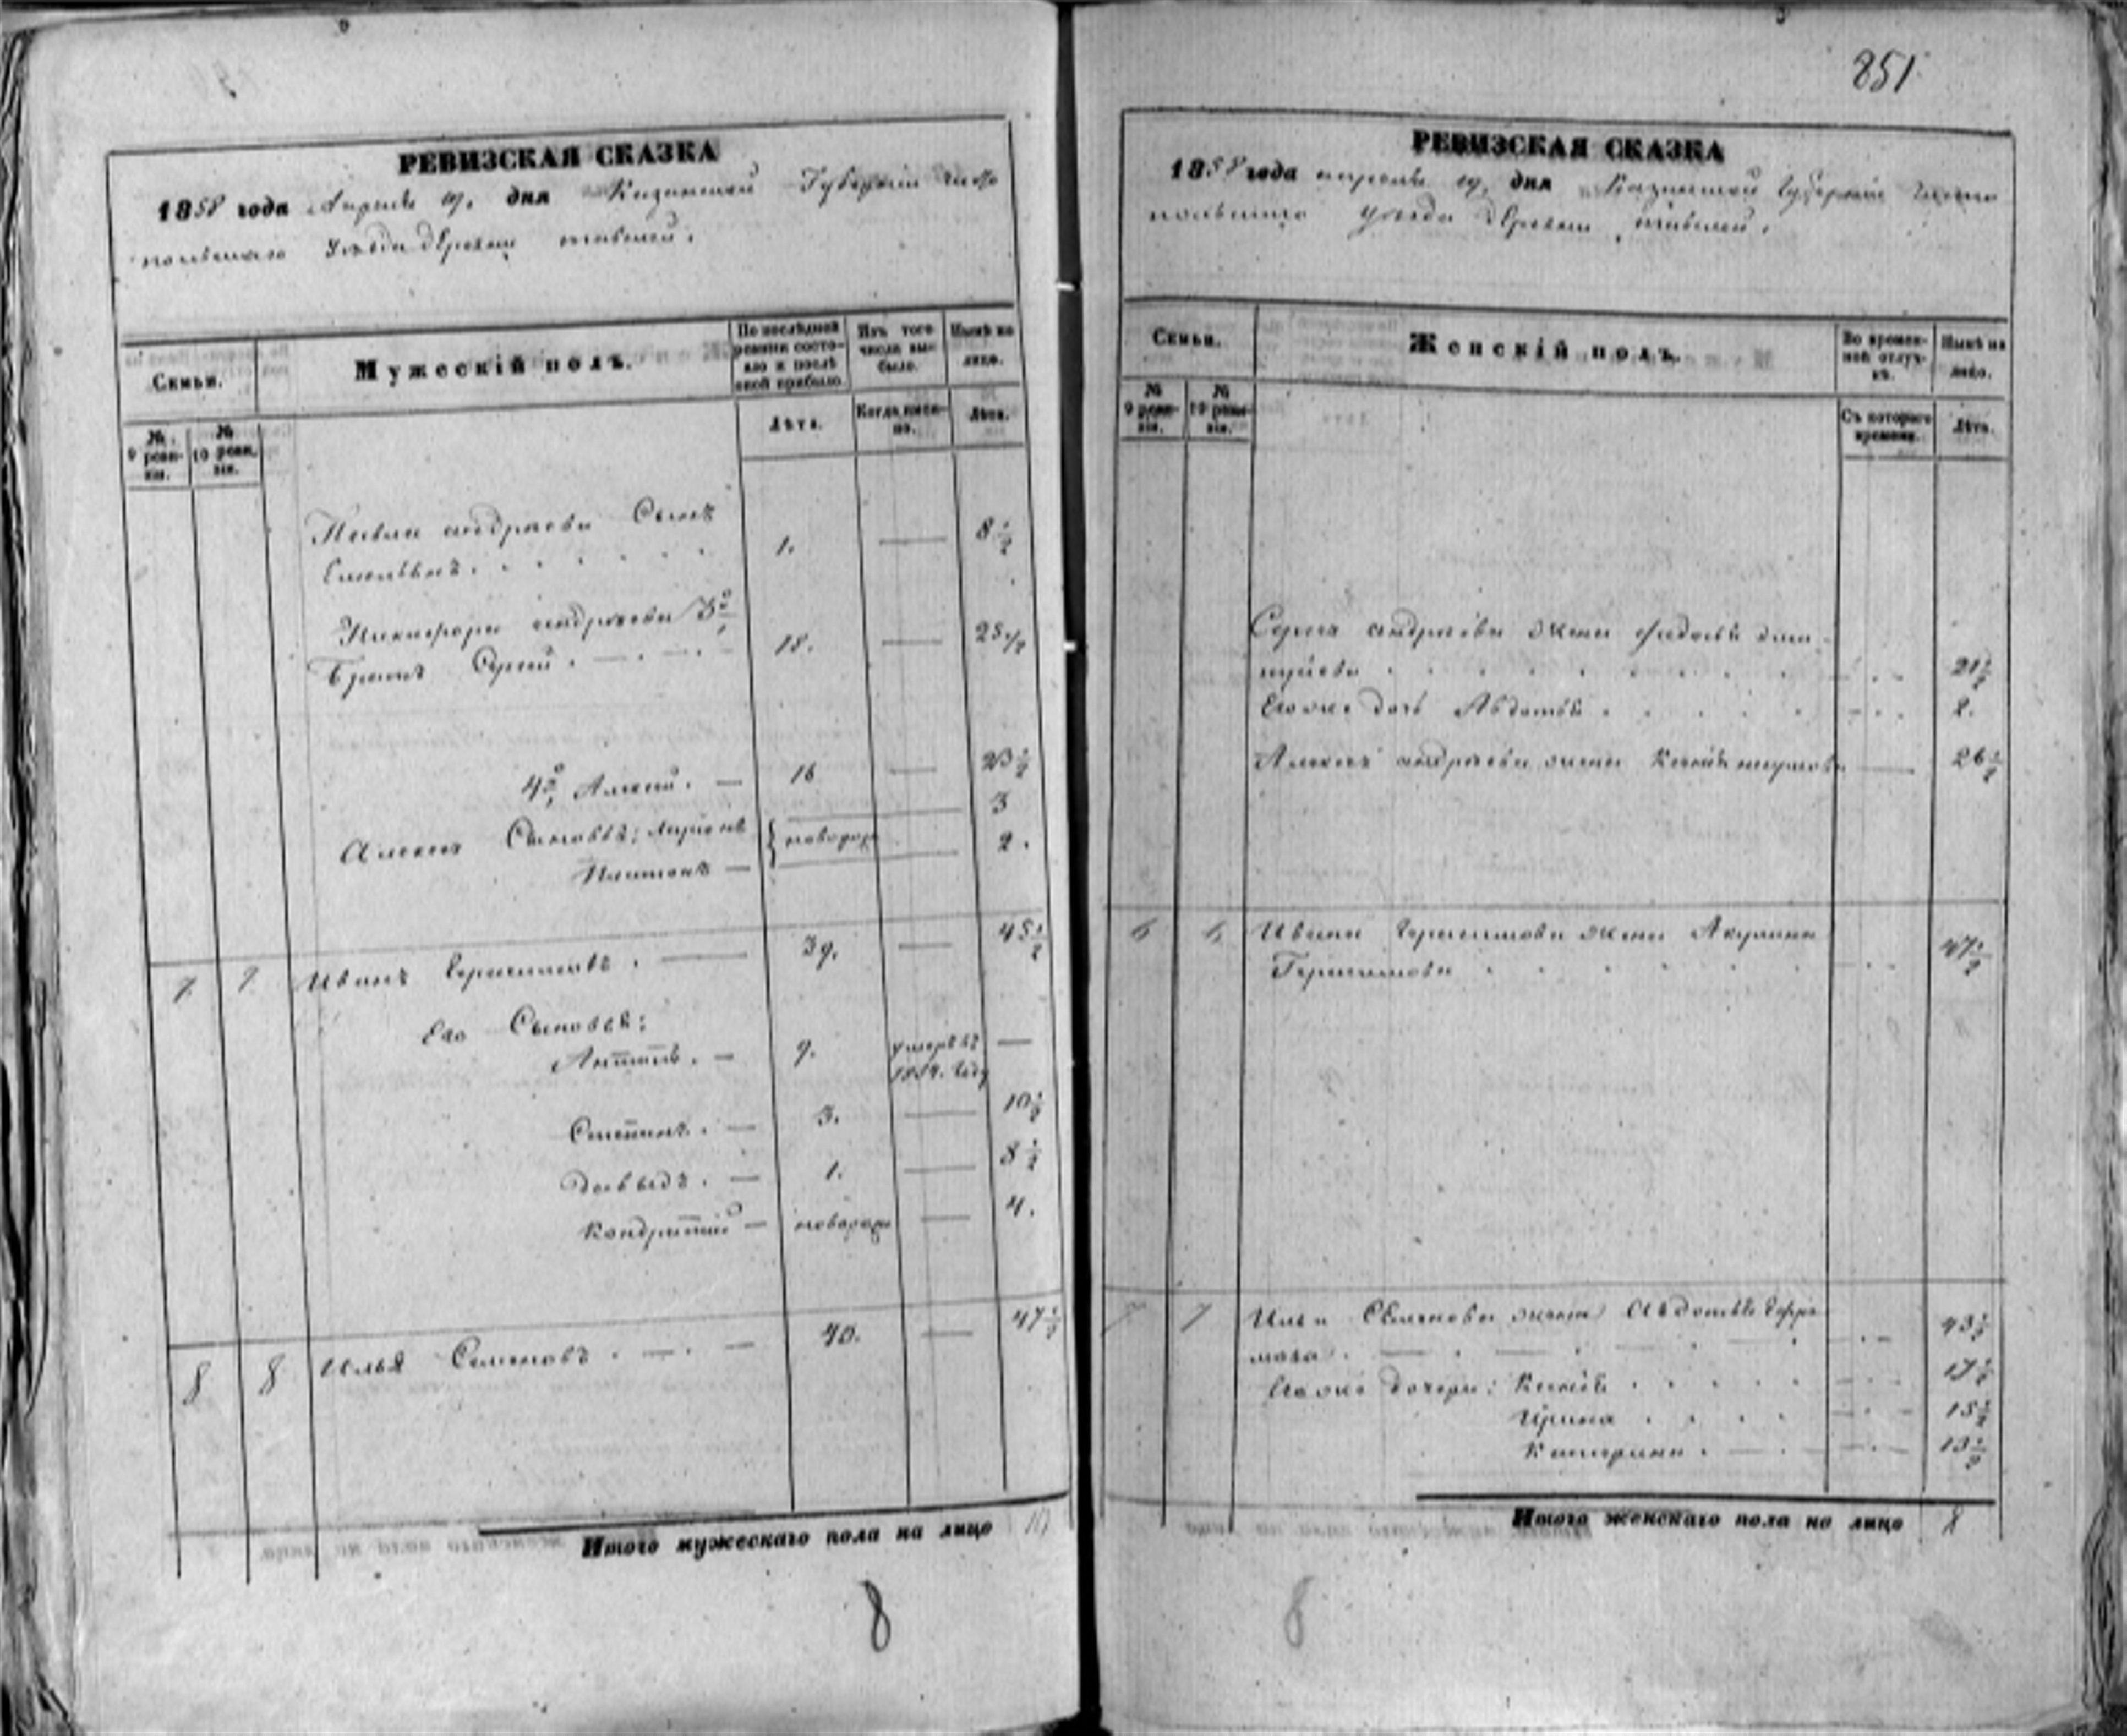 РЕВИЗСКАЯ СКАЗКА
1858 года Апреля 19. дня Казанской Губернии Чисто
польскаго Уезда деревни
Семьи.
Мужескій полъ.
По послѣдней ревизіи состояло и послѣ оной прибыло
Изъ того числа выбыло.
Нынѣ на лицо.
№ 9 ревизіи.
№ 10 ревизіи.
Лѣта.
Когда именно.
Лѣта.
Павла андреева Сынъ
Емельянъ. 1. — 8 1/2
Никифора андреева 3й
братъ Сергей. 18. — 25 1/2
4й, Алексей. — 16 — 23 1/2
Алексея Сыновья; Ларионъ новорож 3
Платонъ — 2.
7 7 Иванъ Герасимовъ. — 39. — 45 1/2
Его Сыновья:
Антипъ. — 9. умеръ въ 1854. году —
Степанъ. — 3. — 10 1/2
Давыдъ. — 1. — 8 1/2
Кондратий — новорож — 4.
8 8 Илья Семеновъ. — 40. — 47 1/2
Итого мужескаго пола на лицо 10
8
851
РЕВИЗСКАЯ СКАЗКА
1858 года апреля 19, дня Казанской Губернии Чисто
польскаго уезда деревни
Семьи.
Женскій полъ.
Во временной отлучкѣ.
Нынѣ на лицо.
№ 9 ревизіи.
№ 10 ревизіи.
Съ котораго времени.
Лѣта.
Сергея андреева жена Федосья
21 1/2
Его же дочь Авдотья. 2.
Алексея андреева жена Ксенья — 26 1/2
6 6 Ивана Герасимова жена Акулина
Герасимова 47 1/2
7 7 Ильи Семенова жена Авдотья Ефре
мова. 43 1/2
Его же дочери: Ксенья 17 1/2
Ирина 15 1/2
Катерина. 13 1/2
Итого женскаго пола на лицо 8
8